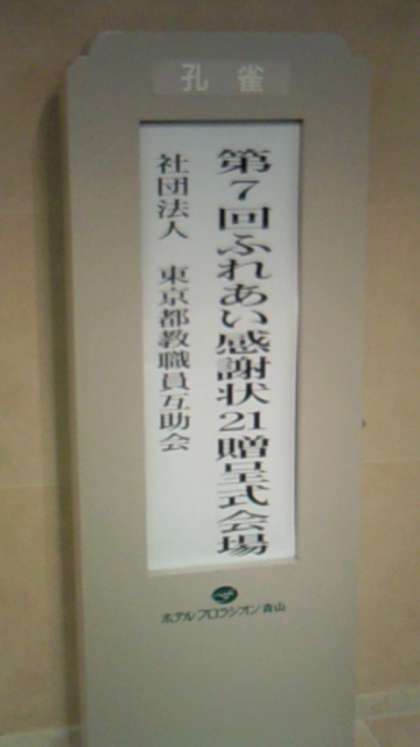 孔雀
第7回ふれあい感謝状21贈呈式会場
社団法人 東京都教職員互助会
ホテルフロラシオン青山